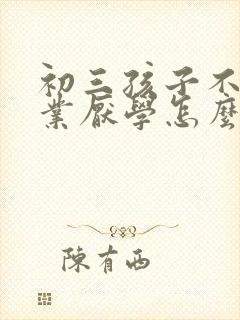 初三孩子不
業厭學怎麼
陳有西